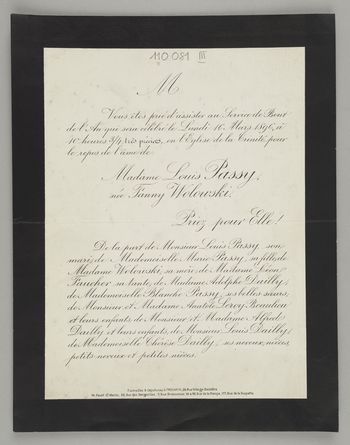 110 081 III
M
Vous êtes prié d'assister au Service de Bout
de l'An qui sera célébré le Lundi 16 Mars 1896, à
10 heures 3/4 très précises, en l'Eglise de la Trinité, pour
le repos de l'âme de
Madame Louis Passy,
née Fanny Wolowski.
Priez pour Elle!
De la part de Monsieur Louis Passy, son
mari; de Mademoiselle Marie Passy, sa fille; de
Madame Wolowski, sa mère; de Madame Léon
Faucher sa tante; de Madame Adolphe Dailly,
de Mademoiselle Blanche Passy, ses belles sœurs;
de Monsieur et Madame Anatole Leroy-Beaulieu
et leurs enfants, de Monsieur et Madame Alfred
Dailly et leurs enfants, de Monsieur Louis Dailly,
de Mademoiselle Thérèse Dailly, ses neveux, nièces,
petits-neveux et petites nièces.